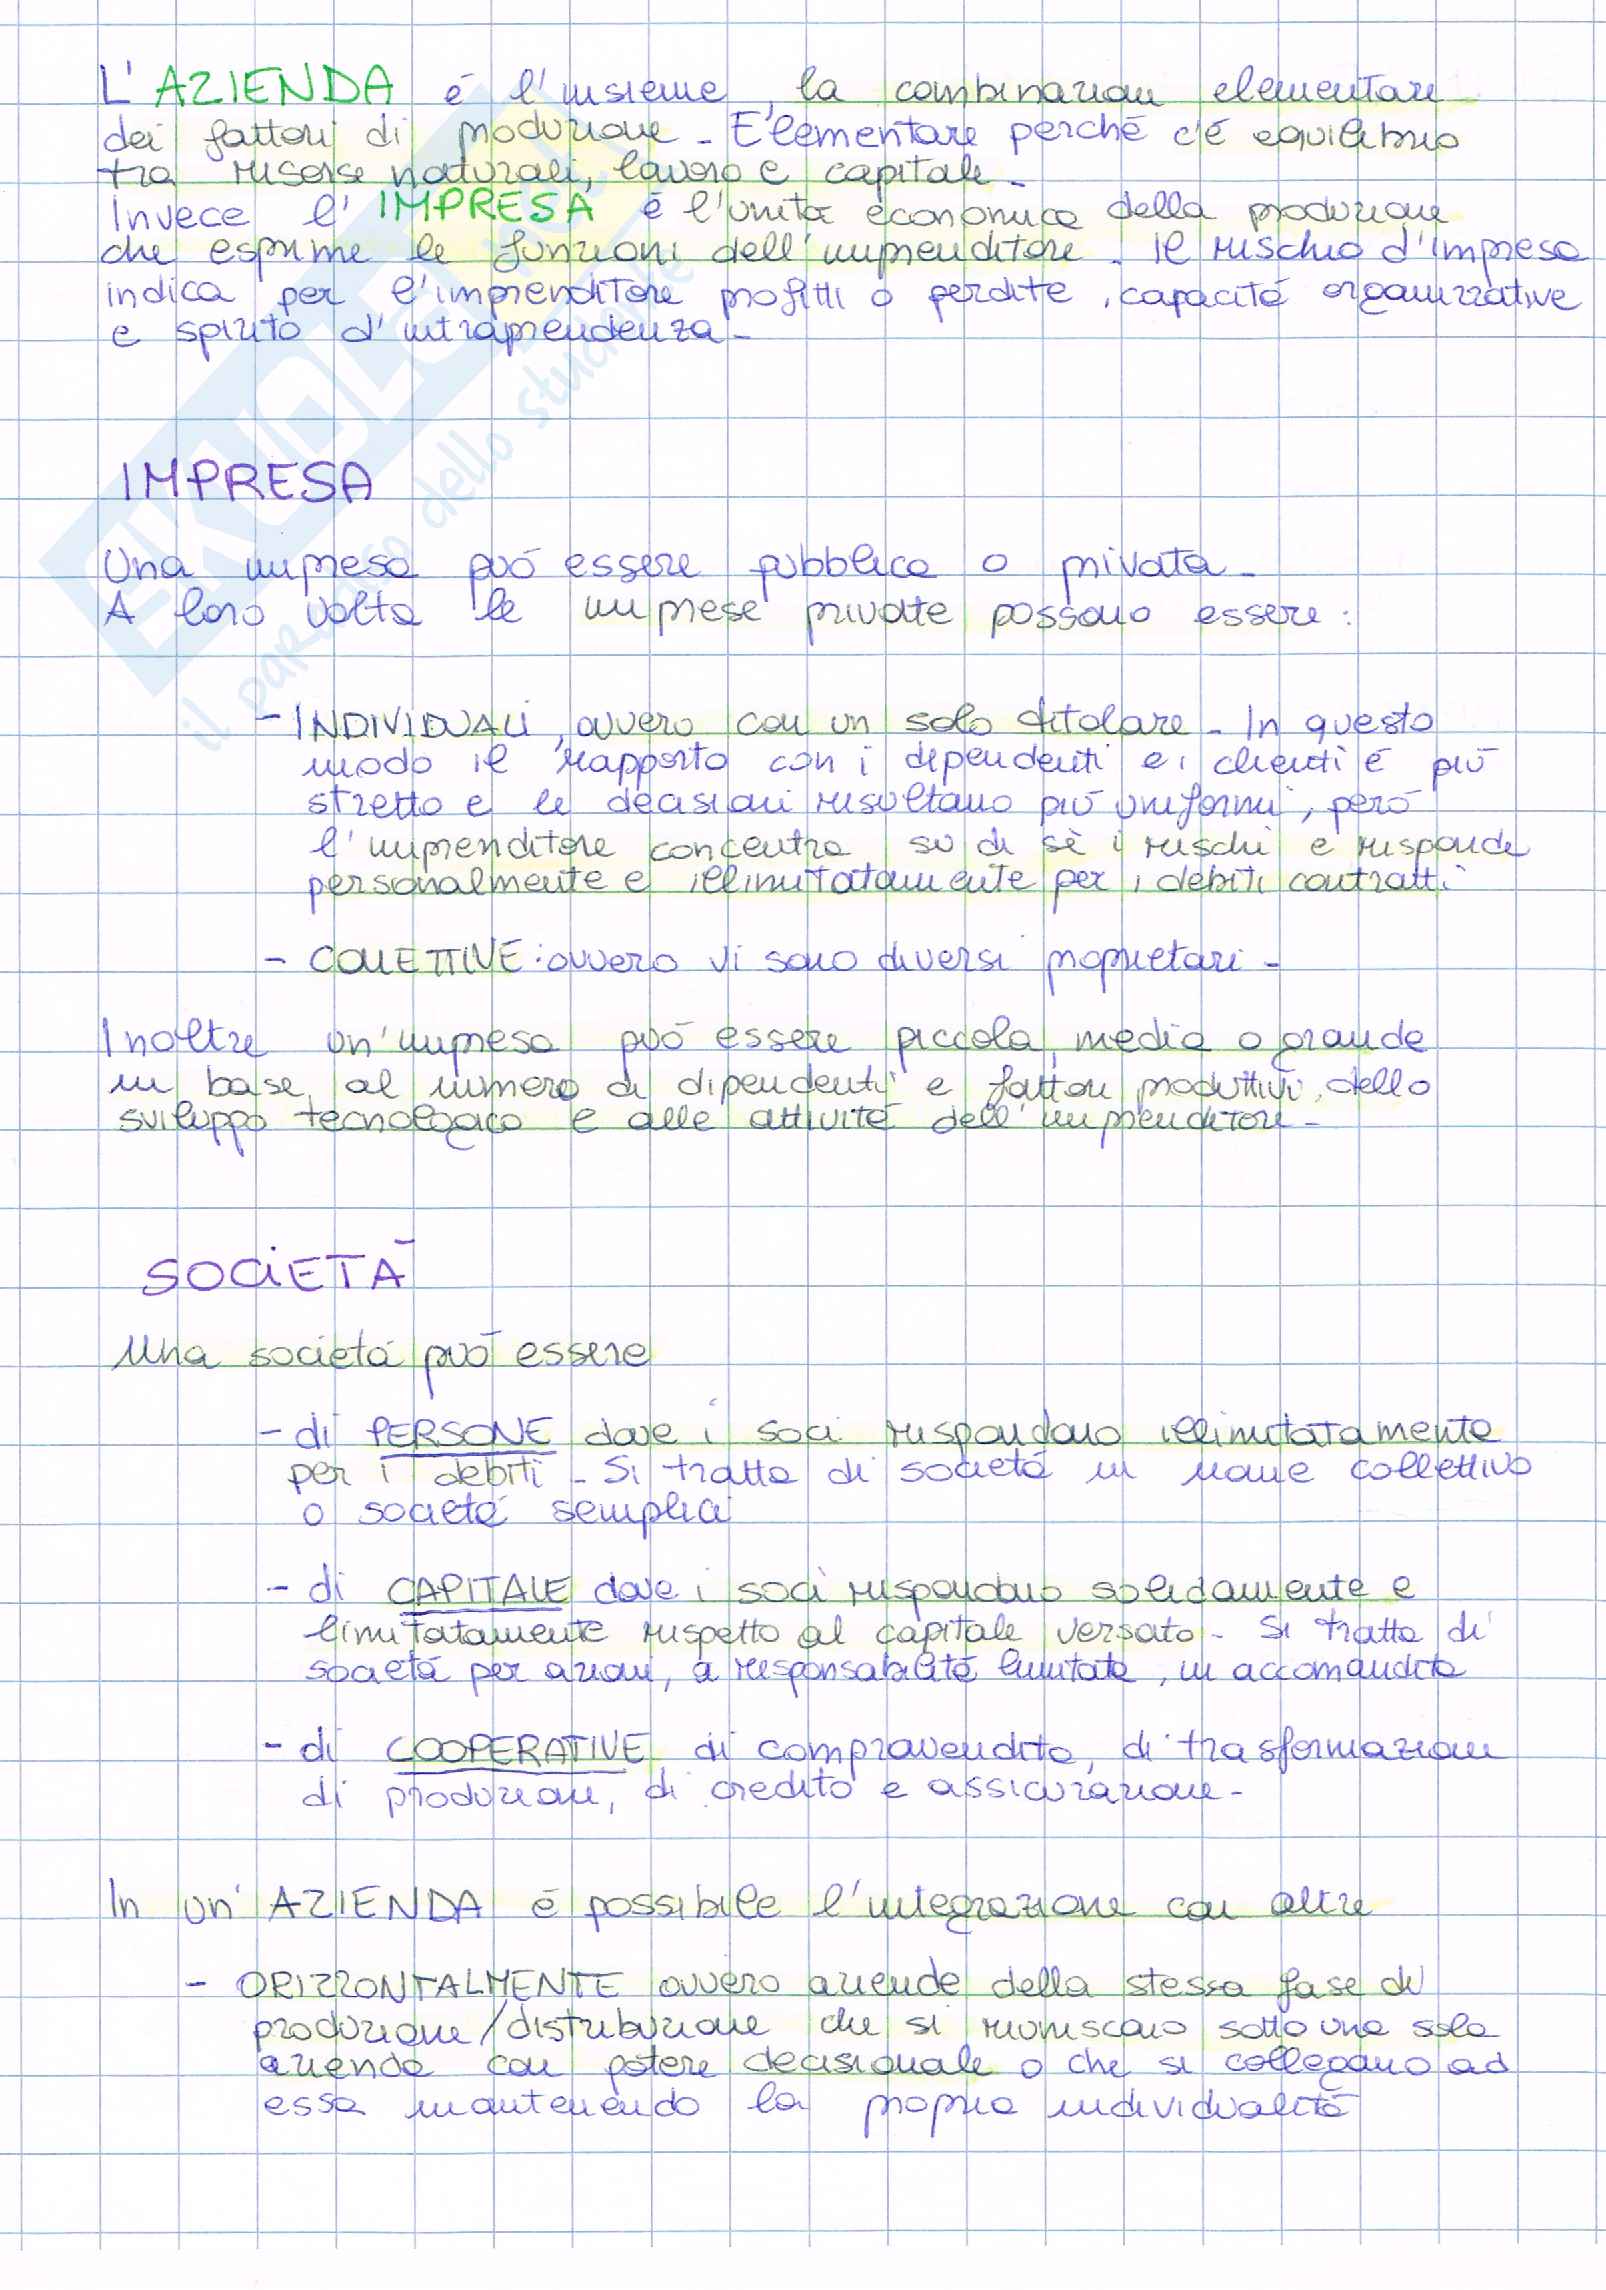 L'AZIENDA é l'insieme, la combinazioni elementari
dei fattori di produzione - Elementare perché c'é equilibrio
tra risorse naturali, lavoro e capitale -
Invece l' IMPRESA é l'unità economica della produzione
che esprime le funzioni dell'imprenditore - il rischio d'impresa
indica per l'imprenditore profitti o perdite, capacità organizzative
e spirito d'intraprendenza -
IMPRESA
Una impresa può essere pubblica o privata -
A loro volta le imprese private possono essere:
- INDIVIDUALI, ovvero con un solo titolare - In questo
modo il rapporto con i dipendenti e i clienti é più
stretto e le decisioni risultano più uniformi, però
l'imprenditore concentra su di sè i rischi e risponde
personalmente e illimitatamente per i debiti contratti
- COLLETTIVE: ovvero vi sono diversi proprietari -
Inoltre un'impresa può essere piccola, media o grande
in base al numero di dipendenti e fattori produttivi, dello
sviluppo tecnologico e alle attività dell'imprenditore -
SOCIETÀ
Una società può essere
- di PERSONE dove i soci rispondono illimitatamente
per i debiti - Si tratta di società in nome collettivo
o società semplici
- di CAPITALE dove i soci rispondono solidamente e
limitatamente rispetto al capitale versato - Si tratta di
società per azioni, a responsabilità limitata, in accomandita
- di COOPERATIVE di compravendita, di trasformazioni
di produzioni, di credito e assicurazione -
In un' AZIENDA é possibile l'integrazione con altre
- ORIZZONTALMENTE ovvero aziende della stessa fase di
produzione/distribuzione che si riuniscono sotto una sola
azienda con potere decisionale o che si collegano ad
essa mantenendo la propria individualità
il paradiso dello studente